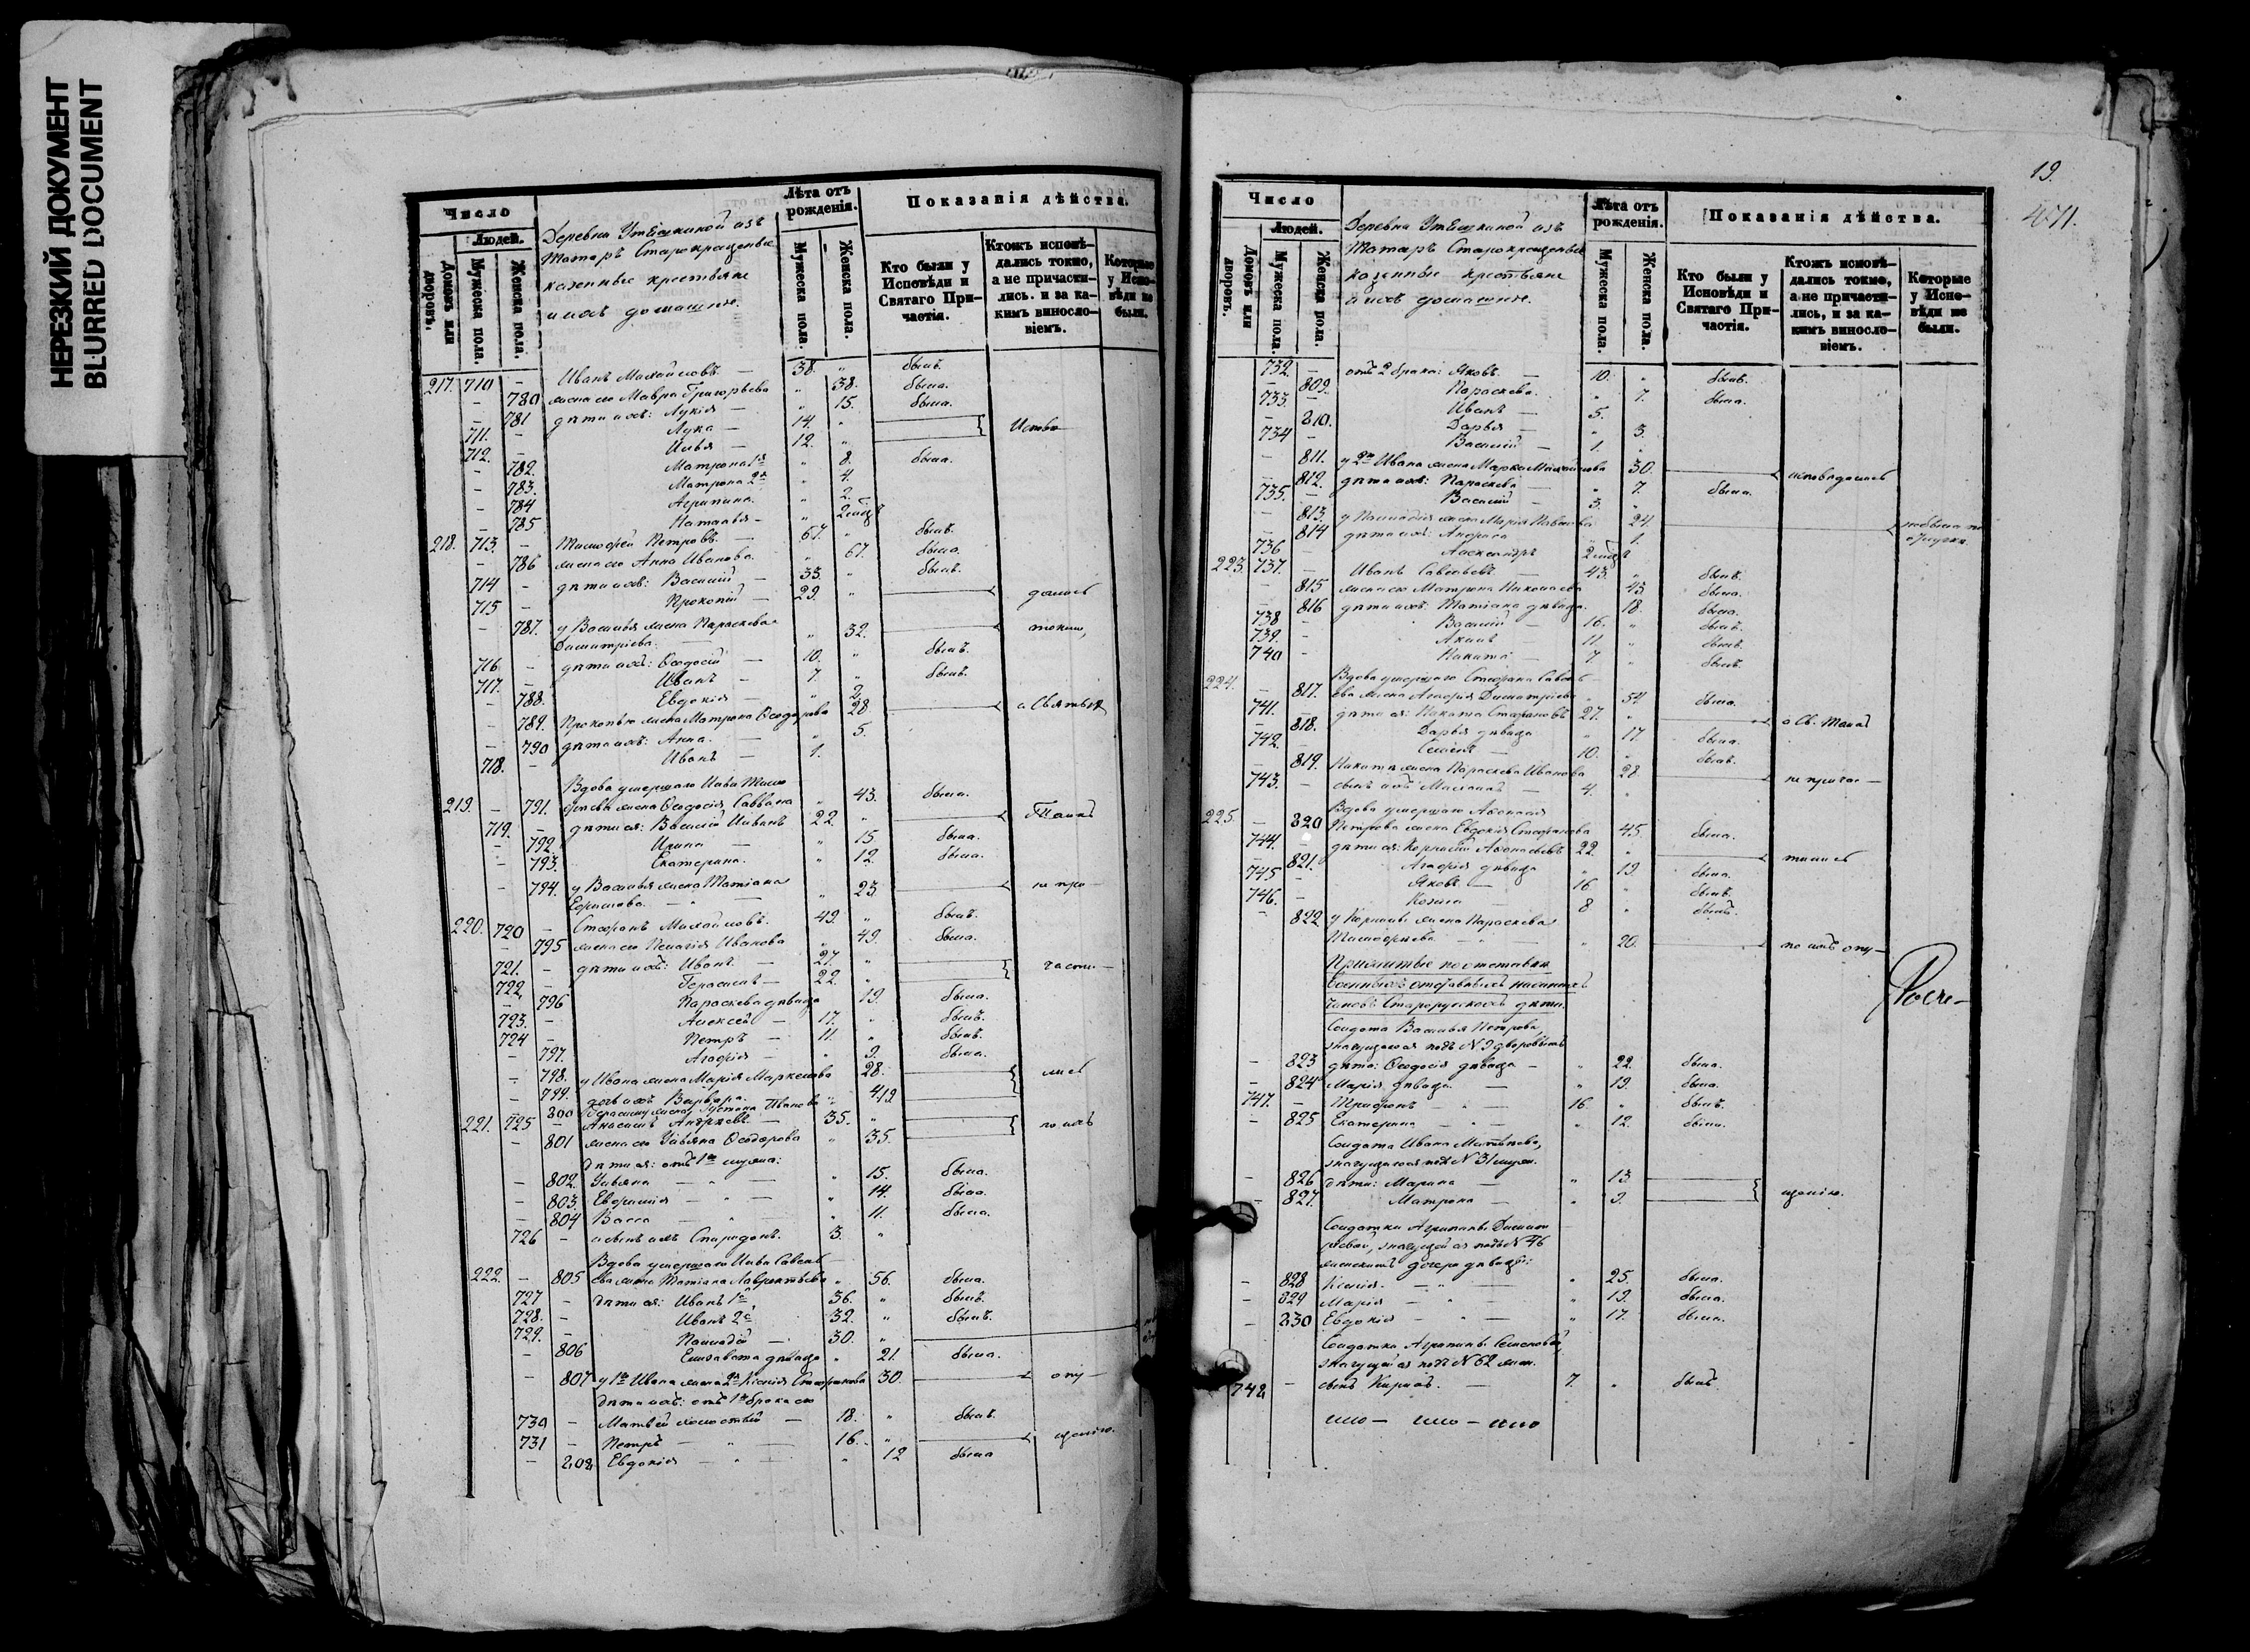 НЕРЕЗКИЙ ДОКУМЕНТ
BLURRED DOCUMENT
Число
Людей.
Домовъ или дворовъ.
Мужеска пола.
Женска пола.
Деревни Утяшкиной изъ
Татаръ Старокрещеные
казенные крестьяне
и ихъ домашніе.
Лѣта отъ рожденія.
Мужеска пола.
Женска пола.
Показанія дѣйства.
Кто были у Исповѣди и Святаго Причастія.
Ктожъ исповѣдались токмо, а не причастились. и за какимъ винословіемъ.
Которые у Исповѣди не были.
217. 710 – Иванъ Михайловъ – 38. „ былъ.
– 780 жена его Мавра Григорьева „ 38. была.
– 781 дѣти ихъ: Лукія – „ 15. была.
711. – Лука – 14. „
712. – Илья – 12. „
– 782. Матрона 1я „ 8. была.
– 783. Матрона 2я „ 4.
– 784 Агрипина. „ 2.
– 785 Наталья – „
218. 713. – Тимофей Петровъ. – 67. „ былъ.
– 786 жена его Анна Иванова. „ 67. была.
714 – дѣти ихъ: Василій – 33. „ былъ.
715 – Прокопій – 29. „
– 787. у Василья жена Параскева
Димитріева. – „ 32. токмо,
716. – дѣти ихъ: Ѳеодосій – 10. „ былъ.
717. – Иванъ – 7. „ былъ.
– 788. Евдокія – „ 2.
– 789. Прокопья жена Матрона Ѳеодорова 28. а Святыхъ
– 790 дѣти ихъ: Анна. – „ 5.
718. – Иванъ – 1.
Вдова умершаго Ильи Тимо
219. – 791. фѣева жена Ѳеодосія Саввина „ 43. была.
719. – дѣти ея: Василій Ильинъ 22. „ Таинъ
– 792. Ирина – „ 15 была.
– 793. Екатерина. „ 12. была.
– 794. у Василья жена Татіана
Ефимова. – „ 23. не при–
220. 720 – Стефанъ Михайловъ. 49. „ былъ.
– 795 жена его Пелагія Иванова „ 49. была.
721. – дѣти ихъ: Иванъ – 27. „
722. – Герасимъ – 22. „ части–
– 796 Параскева дѣвица „ 19. была.
723. – Алексѣй – 17. „ былъ.
724 – Петръ – 11. „ былъ.
– 797. Агафія – „ 9. была.
– 798. у Ивана жена Марія Маркелова 28. лись
– 799. дочь ихъ Варвара.
221. 725 – Андреевъ – 35. „ по ихъ
– 801 жена его Ульяна Ѳеодорова „ 35.
дѣти ея: отъ 1го мужа:
– 802. Ульяна – „ – „ 15. была.
– 803. Евфимія – „ – „ 14. была.
– 804 Васса – „ – „ 11. была.
726 – и сынъ ихъ Спиридонъ. 3. „
Вдова умершаго Ильи Савель–
222. – 805 ева жена Татіана Лаврентьева „ 56. была.
727 – дѣти ея: Иванъ 1й 36. „ былъ.
728. – Иванъ 2й 32. „ былъ.
729. – Палладій – 30. „
– 806 Елизавета дѣвица „ 21. была.
– 807 у 1го Ивана жена 2я Ксенія Стефанова 30. опу–
дѣти ихъ: отъ 1го брака его
730 – Матвѣй холостый – 18. „ былъ.
731 – Петръ – „ – 16. „ щенію.
– 808 Евдокія – „ – „ 12 была
19.
471.
Число
Людей.
Домовъ или дворовъ.
Мужеска пола.
Женска пола.
Деревни Утяшкиной изъ
Татаръ Старокрещеные
казенные крестьяне
и ихъ домашніе.
Лѣта отъ рожденія.
Мужеска пола.
Женска пола.
Показанія дѣйства.
Кто были у Исповѣди и Святаго Причастія.
Ктожъ исповѣдались токмо, а не причастились, и за какимъ винословіемъ.
Которые у Исповѣди не были.
732. – отъ 2 брака: Яковъ. – 10. „ былъ.
– 809. Параскева. „ 7. была.
733. – Иванъ – 5. „
– 810. Дарья – „ 3.
734 – Василій – 1. „
– 811. у 2го Ивана жена Марѳа Михайлова 30. исповѣдались
– 812. дѣти ихъ: Параскева – „ 7. была.
735. – Василій – 3. „
– 813. у Палладія жена Марія Павлова 24.
– 814 дѣти ихъ: „ 1.
736 – Александръ
223. 737. – Иванъ Савельевъ – 43. „ былъ.
– 815 жена его Матрона Николаева 43. была.
– 816 дѣти ихъ: Татіана дѣвица. 18. была.
738 – Василій – 16. „ былъ.
739. – 11. „ былъ.
740 – Никита – 7. „ былъ.
Вдова умершаго Стефана Савель–
224. – 817. ева жена Агафія Димитріева „ 54. была.
741. – дѣти ея: Никита Стефановъ 27. „ а Св. Таинъ
– 818. Дарья дѣвица „ 17 была.
742. – Семенъ – 10. „ былъ.
– 819. Никиты жена Параскева Иванова 28. не прича–
743. – сынъ ихъ – 4. „
Вдова умершаго Аѳанасія
225. – 820 Петрова жена Евдокія Стефанова 45. была.
744. – дѣти ея: Корнилій Аѳанасьевъ 22. „ тились
– 821. Агафія дѣвица „ 19. была.
745 – Яковъ – 16 „ былъ.
746. – Козма – 8 „ былъ.
– 822 у Корнилы жена Параскева
Тимофѣева – „ – „ 20. по ихъ опу–
солдата Василья Петрова,
значущагося подъ № 9 дворовымъ
– 823 дѣти: Ѳеодосія дѣвица – „ 22. была.
– 824 Марія дѣвица – „ 19. была.
747. – Трифонъ – „ – 16. „ былъ.
– 825 Екатерина – „ – „ 12. была.
Солдата Ивана Матвѣева,
значущагося подъ № 31 муж.
– 826 дѣти: Марина – „ 13
– 827. Матрона – „ 9. щенію.
Солдатки Агрипины Димит
ріевой, значущейся подъ № 46
женскимъ дочери дѣвицы:
– 828 Ксенія. – „ – „ 25. была.
– 829 Марія – „ – „ 19. была.
– 830 Евдокія – „ – „ 17. была.
Солдатки Агрипины Семеновой,
значущейся подъ № 62 жен.
748. – сынъ Кирилъ. – 7. „ былъ